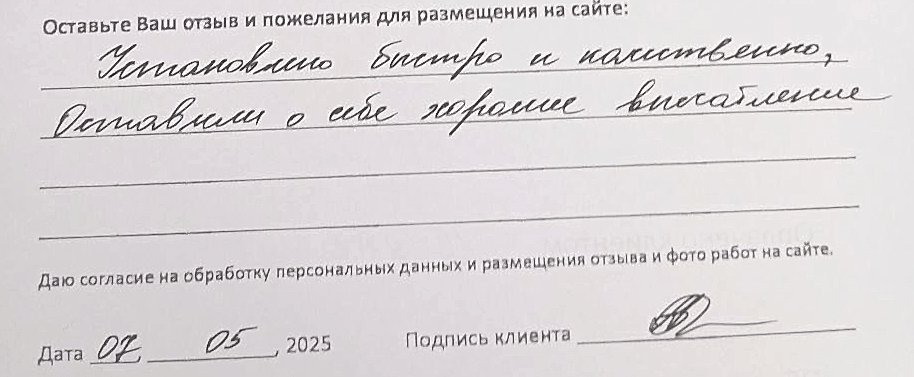 Оставьте Ваш отзыв и пожелания для размещения на сайте:
Установлено быстро и качественно,
Оставили о себе хорошие впечатление
Даю согласие на обработку персональных данных и размещения отзыва и фото работ на сайте.
Дата 07, 05, 2025 Подпись клиента